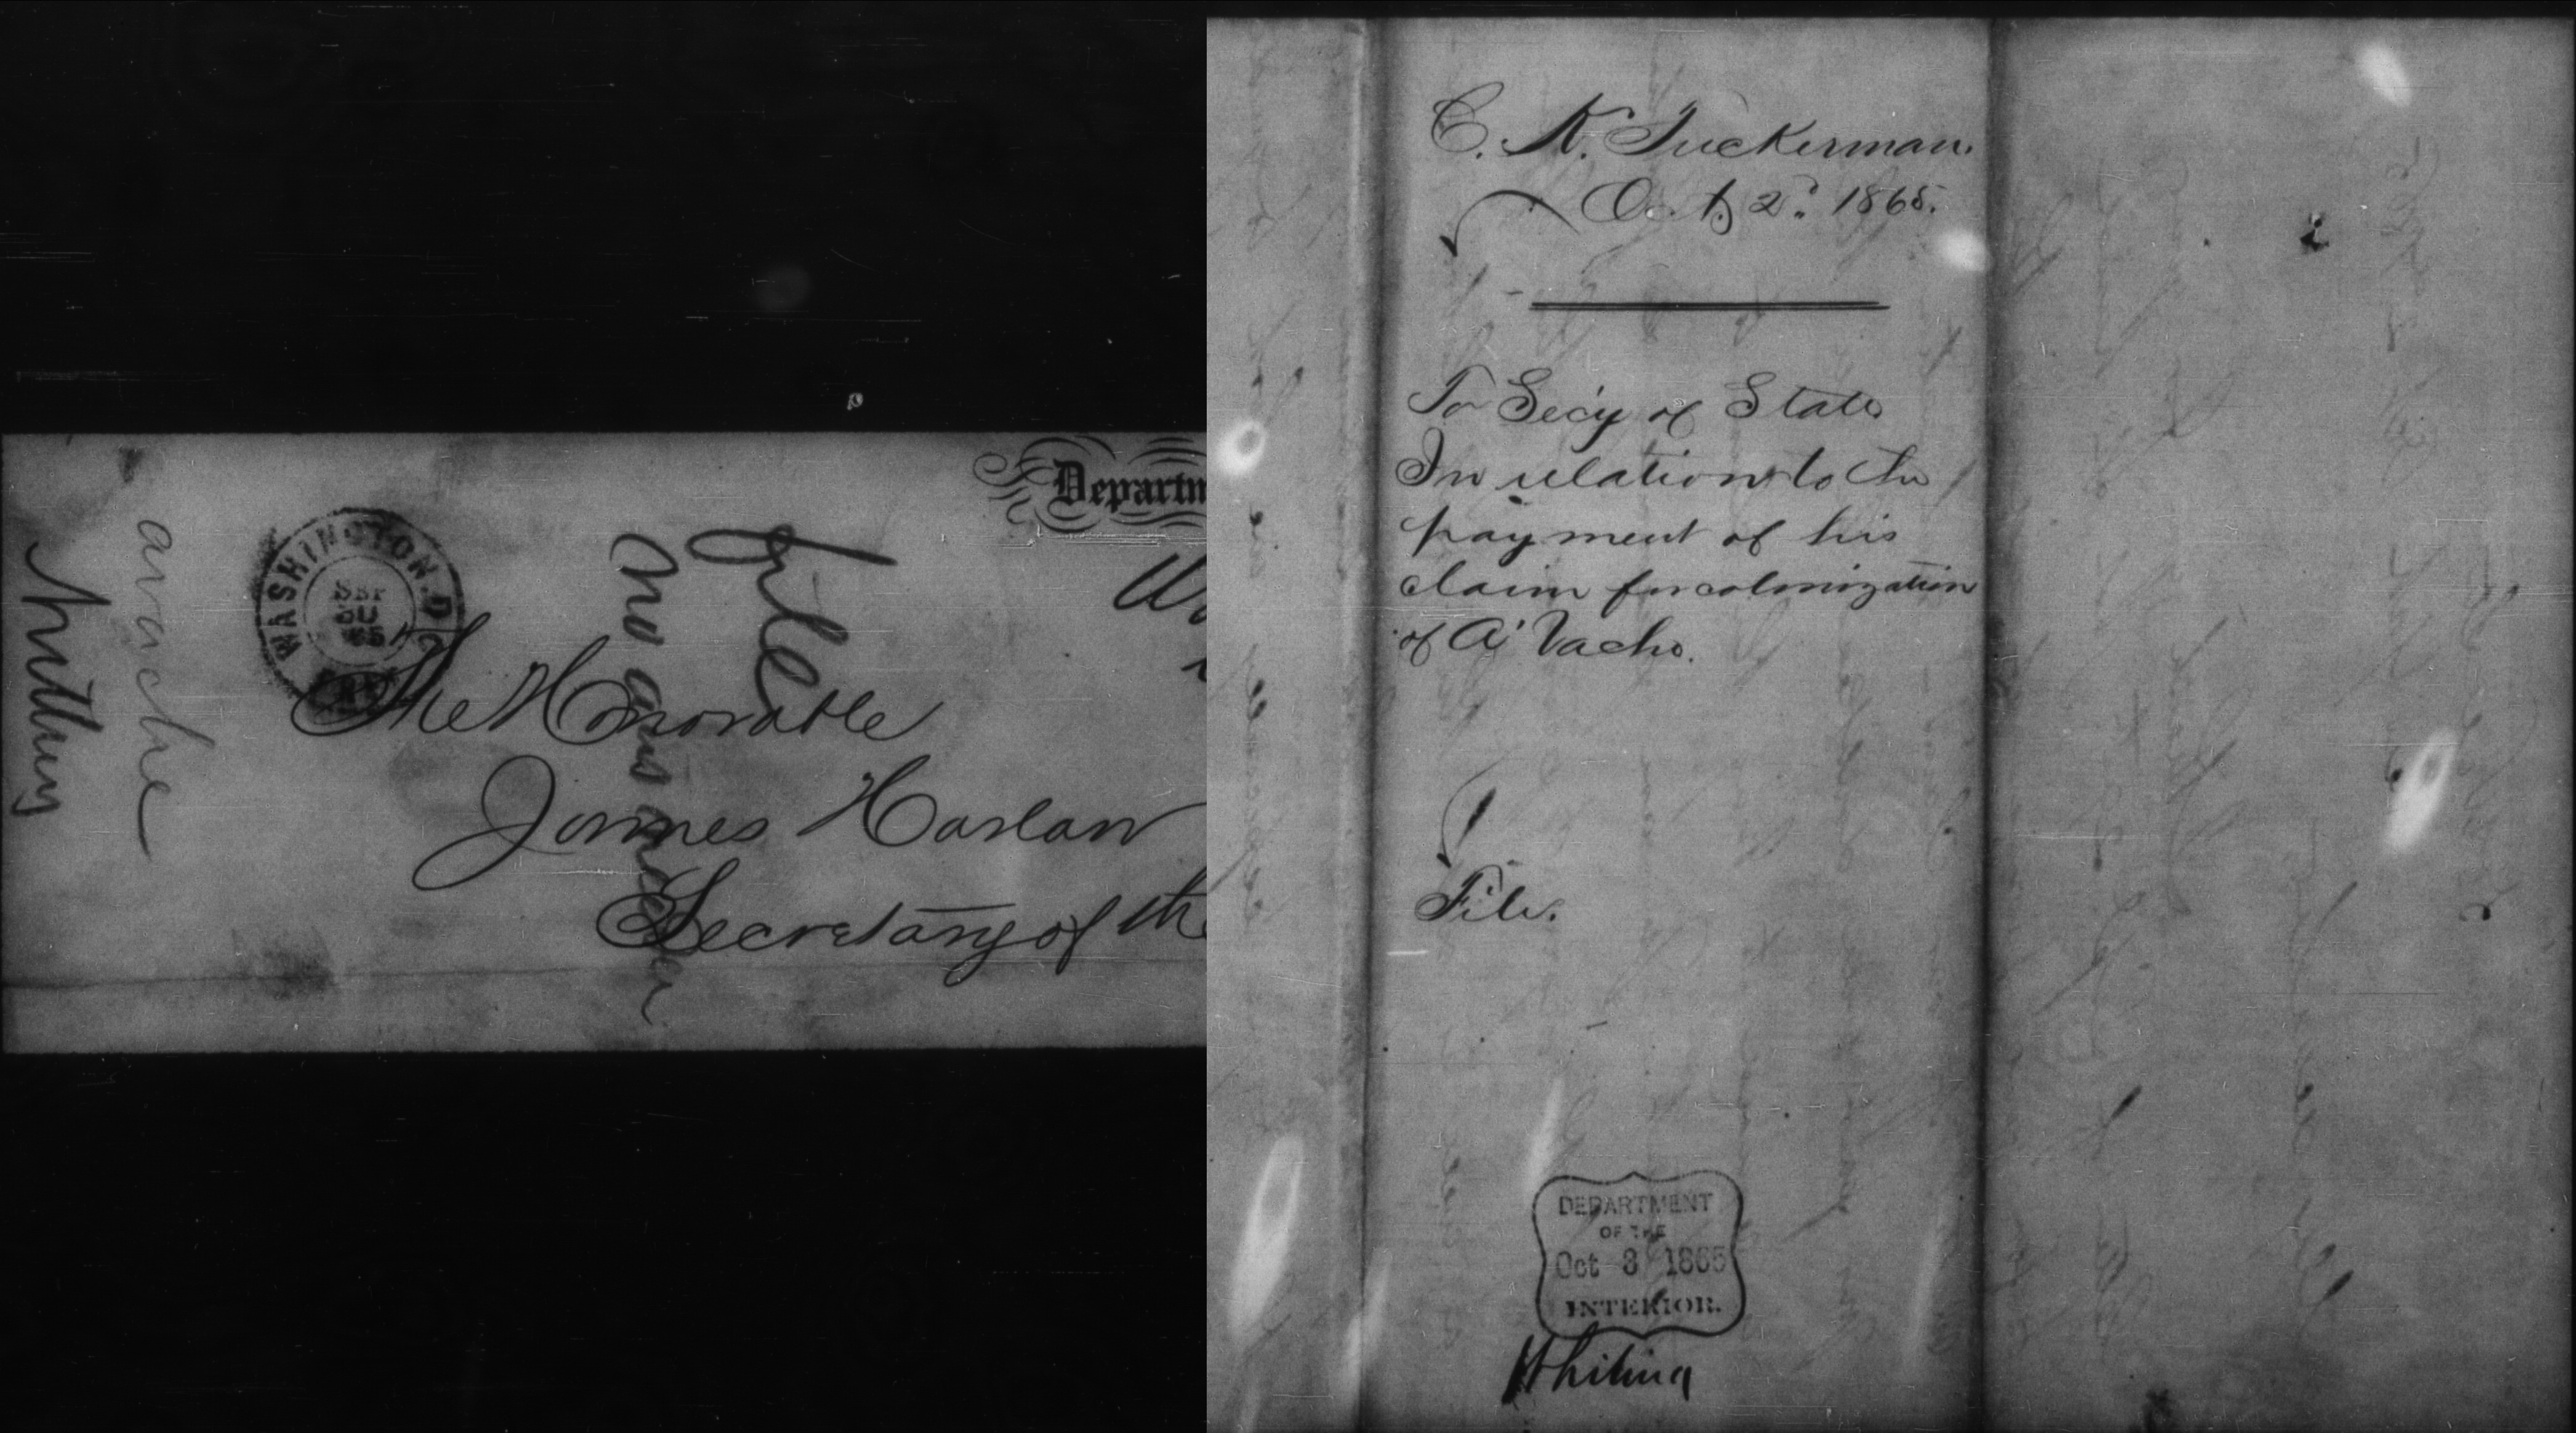 Departm
WASHINGTON D
SEP
30
65
File
no answer
avache
Whiting
The Honorable
James Harlan
Secretary of the
C. K. Tuckerman.
Oct. 2d. 1865.
To Secy of State
In relation to the
payment of his
claim for colonization
of A'Vache.
File.
DEPARTMENT
OF THE
Oct 3 1865
INTERIOR.
Whiting